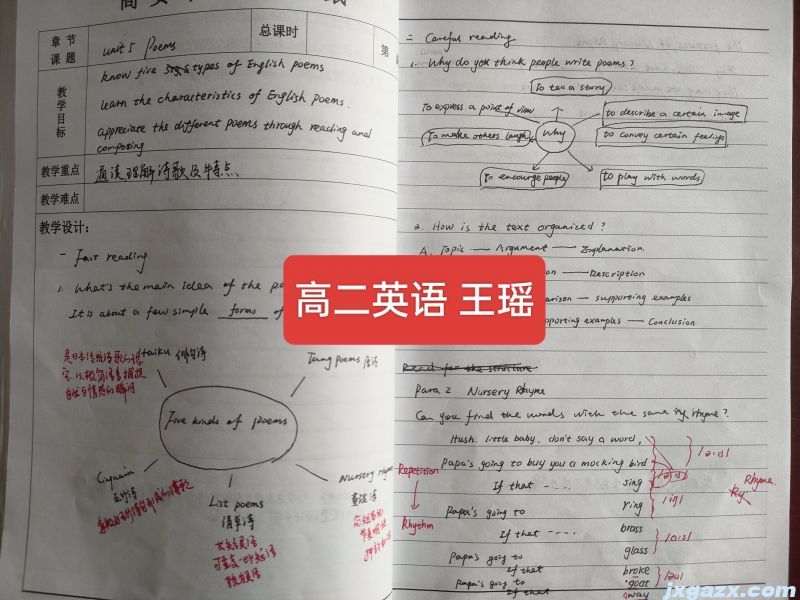 章节
课题
Unit 5 Poems
总课时
第
教学目标
know five types of English poems
learn the characteristics of English poems.
appreciate the different poems through reading and
composing
教学重点
通读理解诗歌及特点、
教学难点
教学设计:
一 Fast reading
1. What's the main idea of the
It is about a few simple forms of
Haiku 俳句诗
Tang poems 唐诗
Five kinds of poems
Cinquain
五行诗
List poems
清单诗
Nursery rhyme
童谣诗
二 Careful reading
1. Why do you think people write poems?
To tell a story
To express a point of view
to describe a certain image
To make others laugh
Why
to convey certain feelings
To encourge people
to play with words
2. How is the text organized?
A. Topic — Argument — Explanation
Description
supporting examples
examples — Conclusion
高二英语 王瑶
Read for the structure
Para 2 Nursery Rhyme
Can you find the words with the same rhyme?
Hush, little baby, don't say a word,
Papa's going to buy you a mocking bird
/ɜ:d/
If that sing
Repetition
Rhyme
Papa's going to ring
/iŋ/
Rhythm
If that brass
Papa's going to glass
/ɑ:s/
If that broke
Papa's going to goat
/əu/
If that away
jxgazx.com